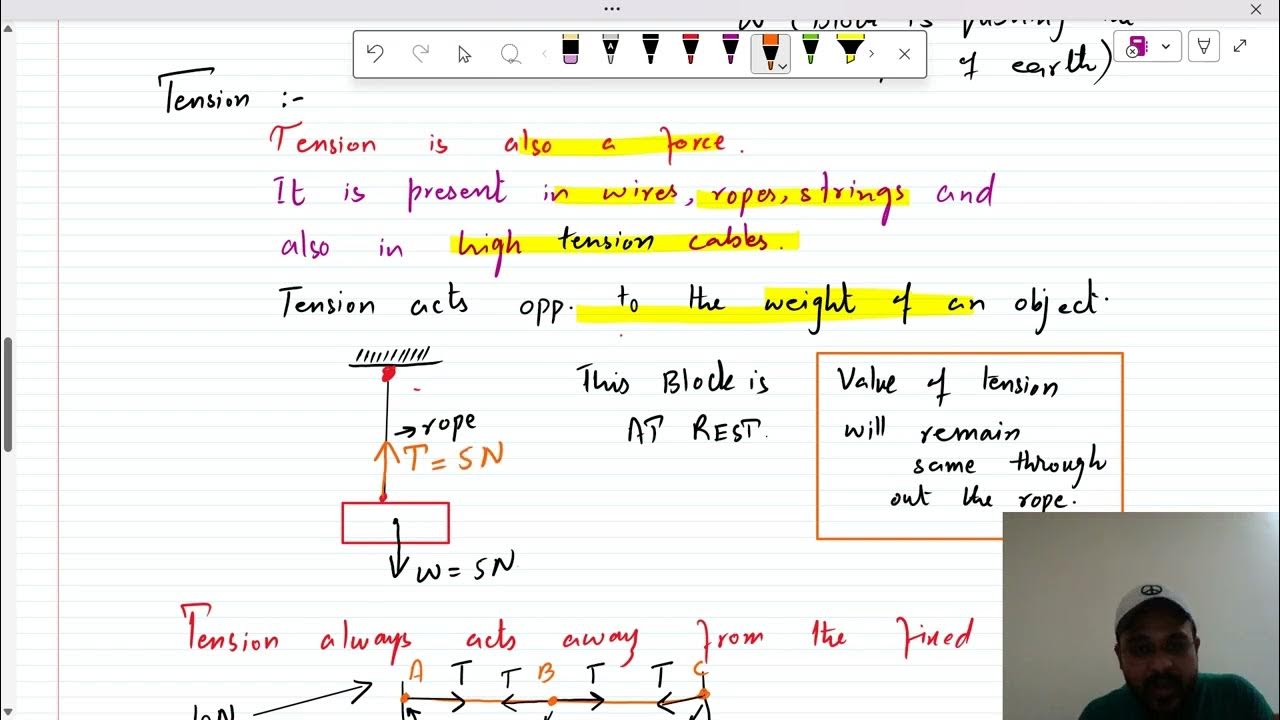 of earth)
Tension :-
Tension is also a force.
It is present in wires, ropes, strings and
also in high tension cables.
Tension acts opp. to the weight of an object.
→ rope
T = 5N
W = 5N
This Block is
AT REST.
Value of tension
will remain
same through
out the rope.
Tension always acts away from the fixed
A T T B T T C